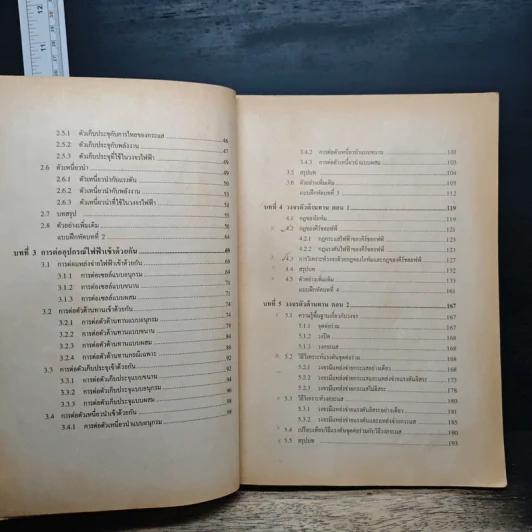 11
12
2.5.1 ตัวเก็บประจุกับการไหลของกระแส 46
2.5.2 ตัวเก็บประจุกับพลังงาน 47
2.5.3 ตัวเก็บประจุที่ใช้ในวงจรไฟฟ้า 49
2.6 ตัวเหนี่ยวนำ 49
2.6.1 ตัวเหนี่ยวนำกับแรงดัน 50
2.6.2 ตัวเหนี่ยวนำกับพลังงาน 51
2.6.3 ตัวเหนี่ยวนำที่ใช้ในวงจรไฟฟ้า 53
2.7 บทสรุป 54
2.8 ตัวอย่างเพิ่มเติม
แบบฝึกหัดบทที่ 2 64
บทที่ 3 การต่ออุปกรณ์ไฟฟ้าเข้าด้วยกัน 68
3.1 การต่อแหล่งจ่ายไฟฟ้าเข้าด้วยกัน
3.1.1 การต่อเซลล์แบบอนุกรม 68
3.1.2 การต่อเซลล์แบบขนาน 71
3.1.3 การต่อเซลล์แบบผสม
3.2 การต่อตัวต้านทานเข้าด้วยกัน 74
3.2.1 การต่อตัวต้านทานแบบอนุกรม 74
3.2.2 การต่อตัวต้านทานแบบขนาน
3.2.3 การต่อตัวต้านทานแบบผสม
3.2.4 การต่อตัวต้านทานกรณีเฉพาะ
3.3 การต่อตัวเก็บประจุเข้าด้วยกัน 92
3.3.1 การต่อตัวเก็บประจุแบบขนาน 92
3.3.2 การต่อตัวเก็บประจุแบบอนุกรม 94
3.3.3 การต่อตัวเก็บประจุแบบผสม 96
3.4 การต่อตัวเหนี่ยวนำเข้าด้วยกัน 98
3.4.1 การต่อตัวเหนี่ยวนำแบบอนุกรม 98
3.4.2 การต่อตัวเหนี่ยวนำแบบขนาน 101
3.4.3 การต่อตัวเหนี่ยวนำแบบผสม 103
3.5 สรุปบท 104
3.6 ตัวอย่างเพิ่มเติม 105
แบบฝึกหัดบทที่ 3 112
บทที่ 4 วงจรตัวต้านทาน ตอน 1 119
4.1 กฎของโอห์ม 119
4.2 กฎของคีร์ชอฟฟ์ 121
4.2.1 กฎกระแสไฟฟ้าของคีร์ชอฟฟ์ 121
4.2.2 กฎแรงดันไฟฟ้าของคีร์ชอฟฟ์
4.3 การวิเคราะห์วงจรด้วยกฎของโอห์มและกฎของคีร์ชอฟฟ์ 127
4.4 สรุปบท 132
4.5 ตัวอย่างเพิ่มเติม 133
แบบฝึกหัดบทที่ 4 161
บทที่ 5 วงจรตัวต้านทาน ตอน 2 167
5.1 ความรู้พื้นฐานเกี่ยวกับวงจร 167
5.1.1 จุดต่อร่วม 167
5.1.2 วงปิด 167
5.1.3 วงกระแส 168
5.2 วิธีวิเคราะห์แรงดันจุดต่อร่วม 168
5.2.1 วงจรมีแหล่งจ่ายกระแสอย่างเดียว 168
5.2.2 วงจรมีแหล่งจ่ายกระแสและแหล่งจ่ายแรงดันอิสระ 173
5.2.3 วงจรมีแหล่งจ่ายกระแสไม่อิสระ 178
5.3 วิธีวิเคราะห์วงกระแส 180
5.3.1 วงจรมีแหล่งจ่ายแรงดันอิสระอย่างเดียว 181
5.3.2 วงจรมีแหล่งจ่ายแรงดันและแหล่งจ่ายกระแส 185
5.4 เปรียบเทียบวิธีแรงดันจุดต่อร่วมกับวิธีวงกระแส 190
5.5 สรุปบท 193